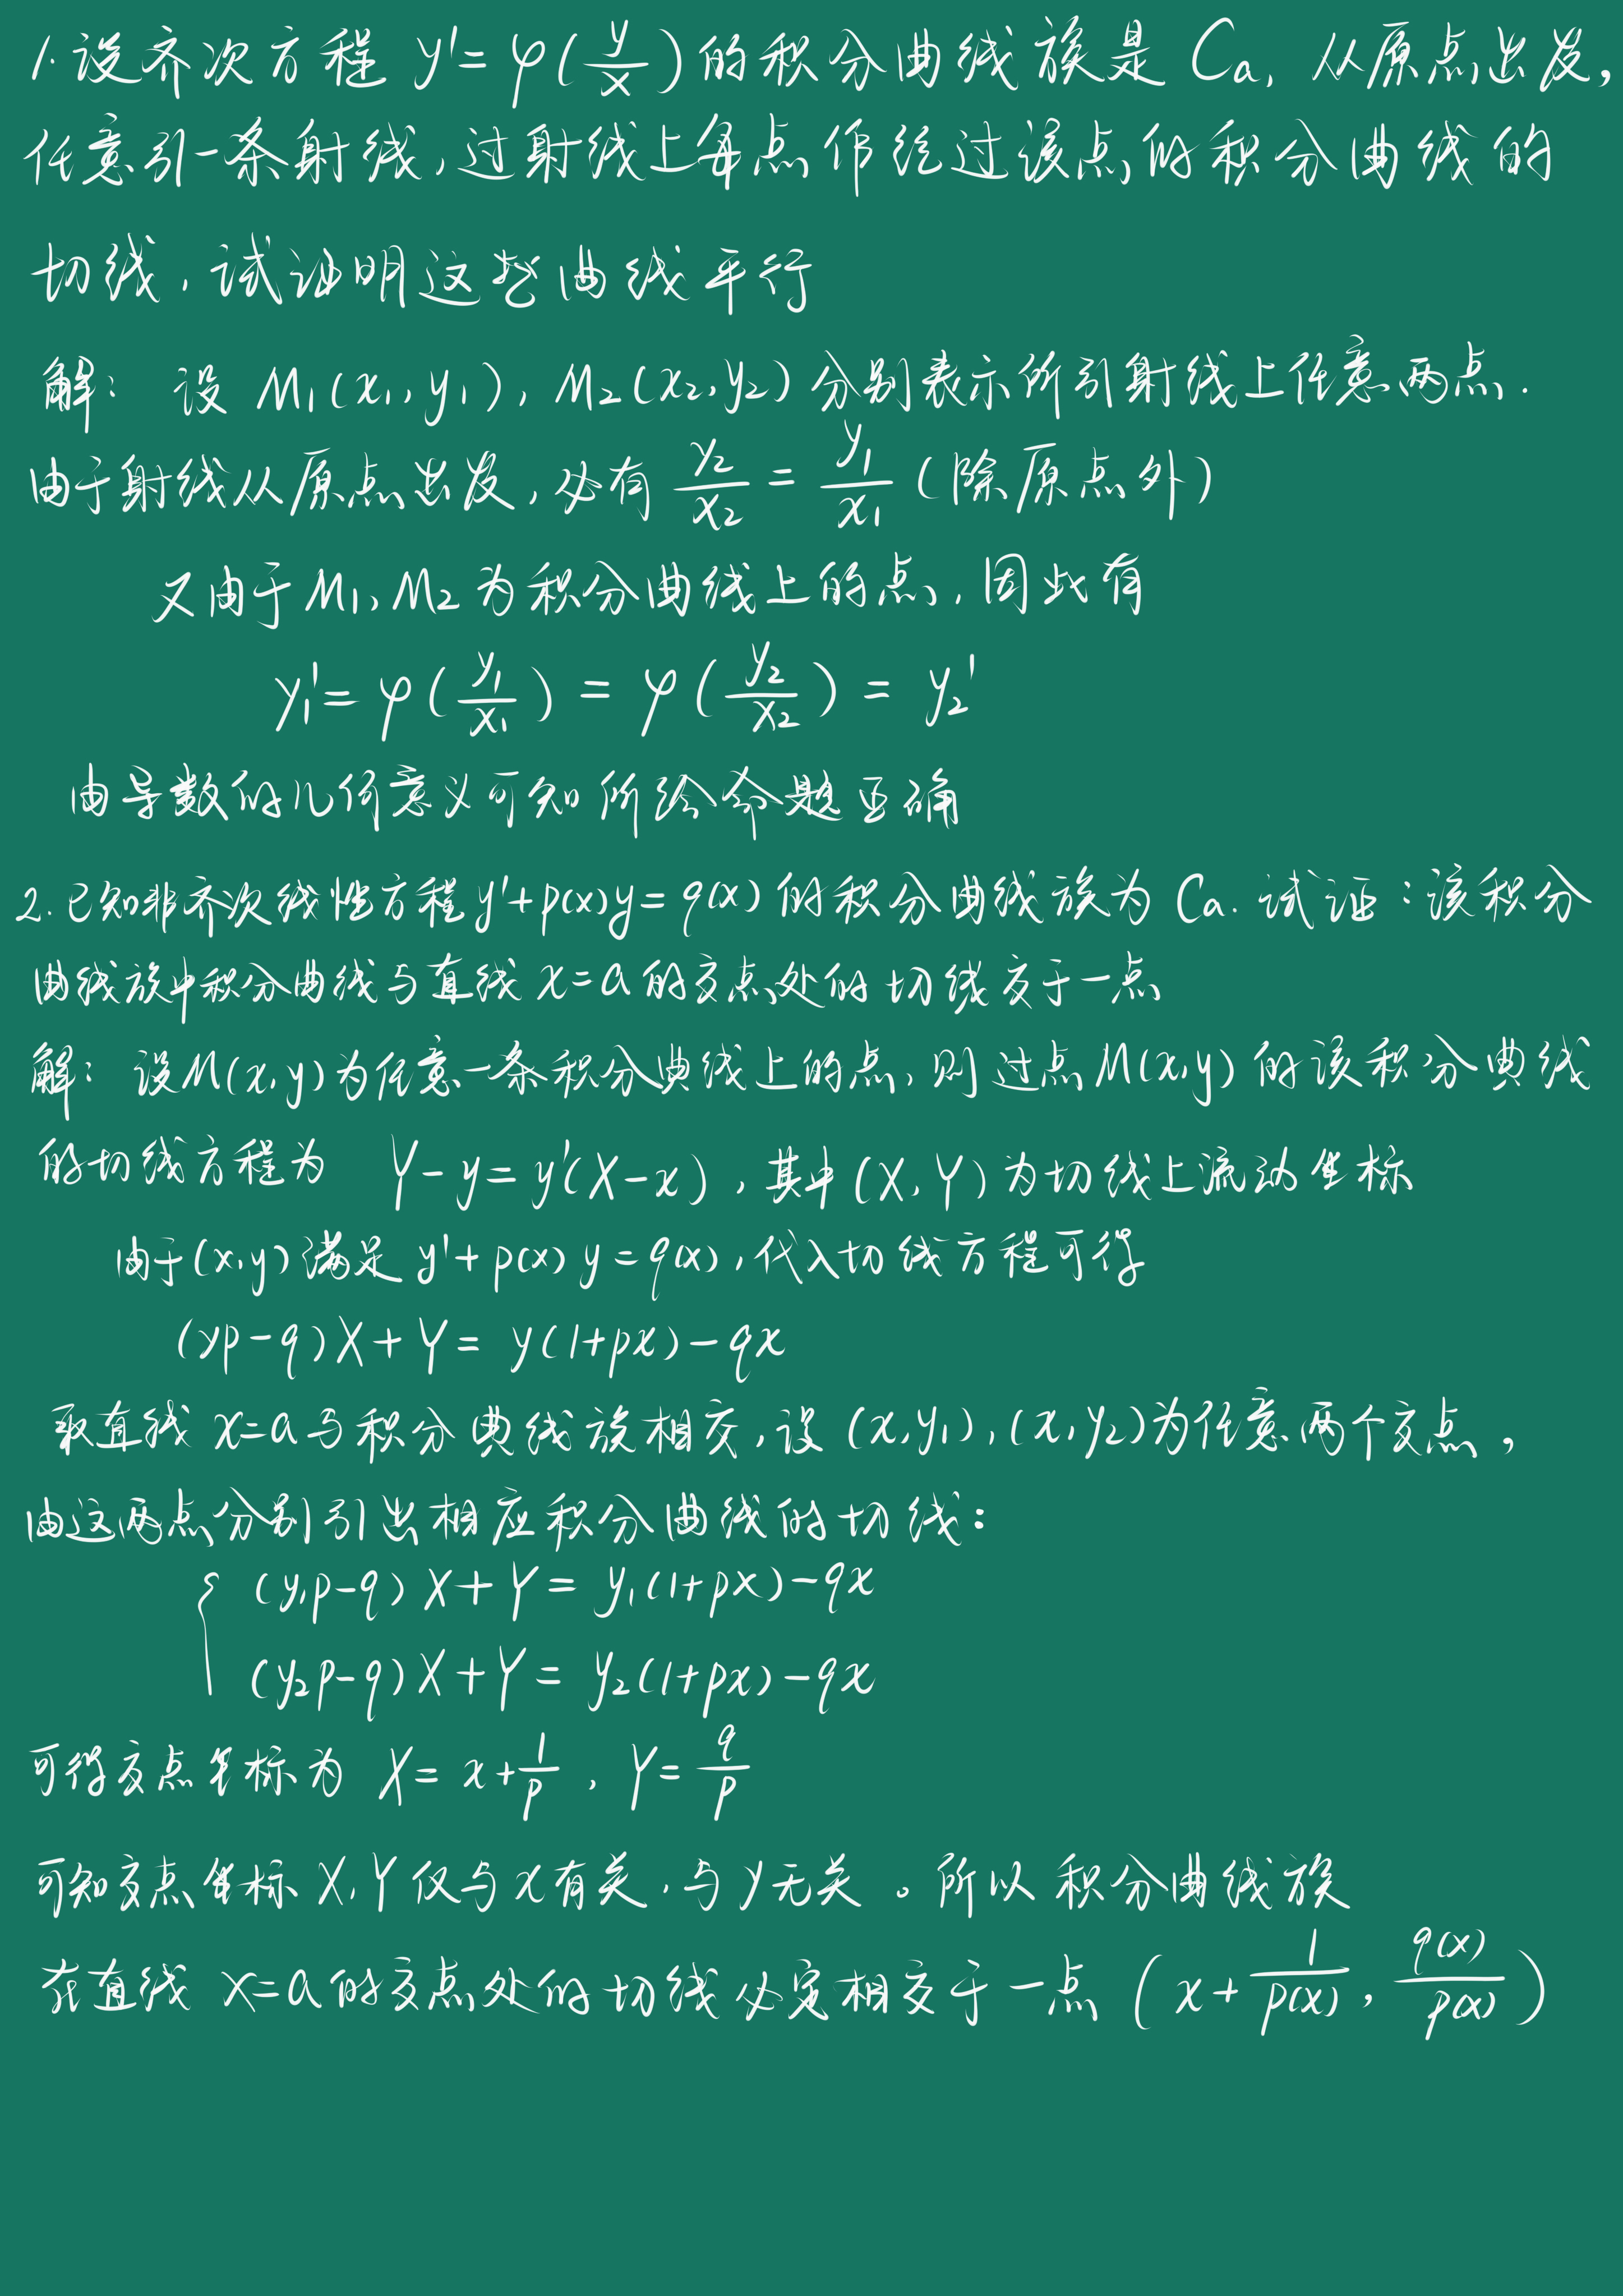 1. 设齐次方程 y' = φ(y/x) 的积分曲线族是 Ca, 从原点出发,
任意引一条射线, 过射线上每点作经过该点的积分曲线的
切线, 试证明这些曲线平行
解: 设 M₁(x₁, y₁), M₂(x₂, y₂) 分别表示所引射线上任意两点.
由于射线从原点出发, 必有 y₂/x₂ = y₁/x₁ (除原点外)
又由于 M₁, M₂ 为积分曲线上的点, 因此有
y₁' = φ(y₁/x₁) = φ(y₂/x₂) = y₂'
由导数的几何意义可知所给命题正确
2. 已知非齐次线性方程 y' + p(x)y = q(x) 的积分曲线族为 Ca. 试证: 该积分
曲线族中积分曲线与直线 x=a 的交点处的切线交于一点
解: 设 M(x, y) 为任意一条积分曲线上的点, 则过点 M(x, y) 的该积分曲线
的切线方程为 Y - y = y'(X - x), 其中 (X, Y) 为切线上流动坐标
由于 (x, y) 满足 y' + p(x) y = q(x), 代入切线方程可得
(yp - q)X + Y = y(1 + px) - qx
取直线 x=a 与积分曲线族相交, 设 (x, y₁), (x, y₂) 为任意两个交点,
由这两点分别引出相应积分曲线的切线:
{ (y₁p - q) X + Y = y₁(1 + px) - qx
(y₂p - q) X + Y = y₂(1 + px) - qx
可得交点坐标为 X = x + 1/p , Y = q/p
可知交点坐标 X, Y 仅与 x 有关, 与 y 无关。所以积分曲线族
在直线 x=a 的交点处的切线必定相交于一点 (x + 1/p(x), q(x)/p(x))